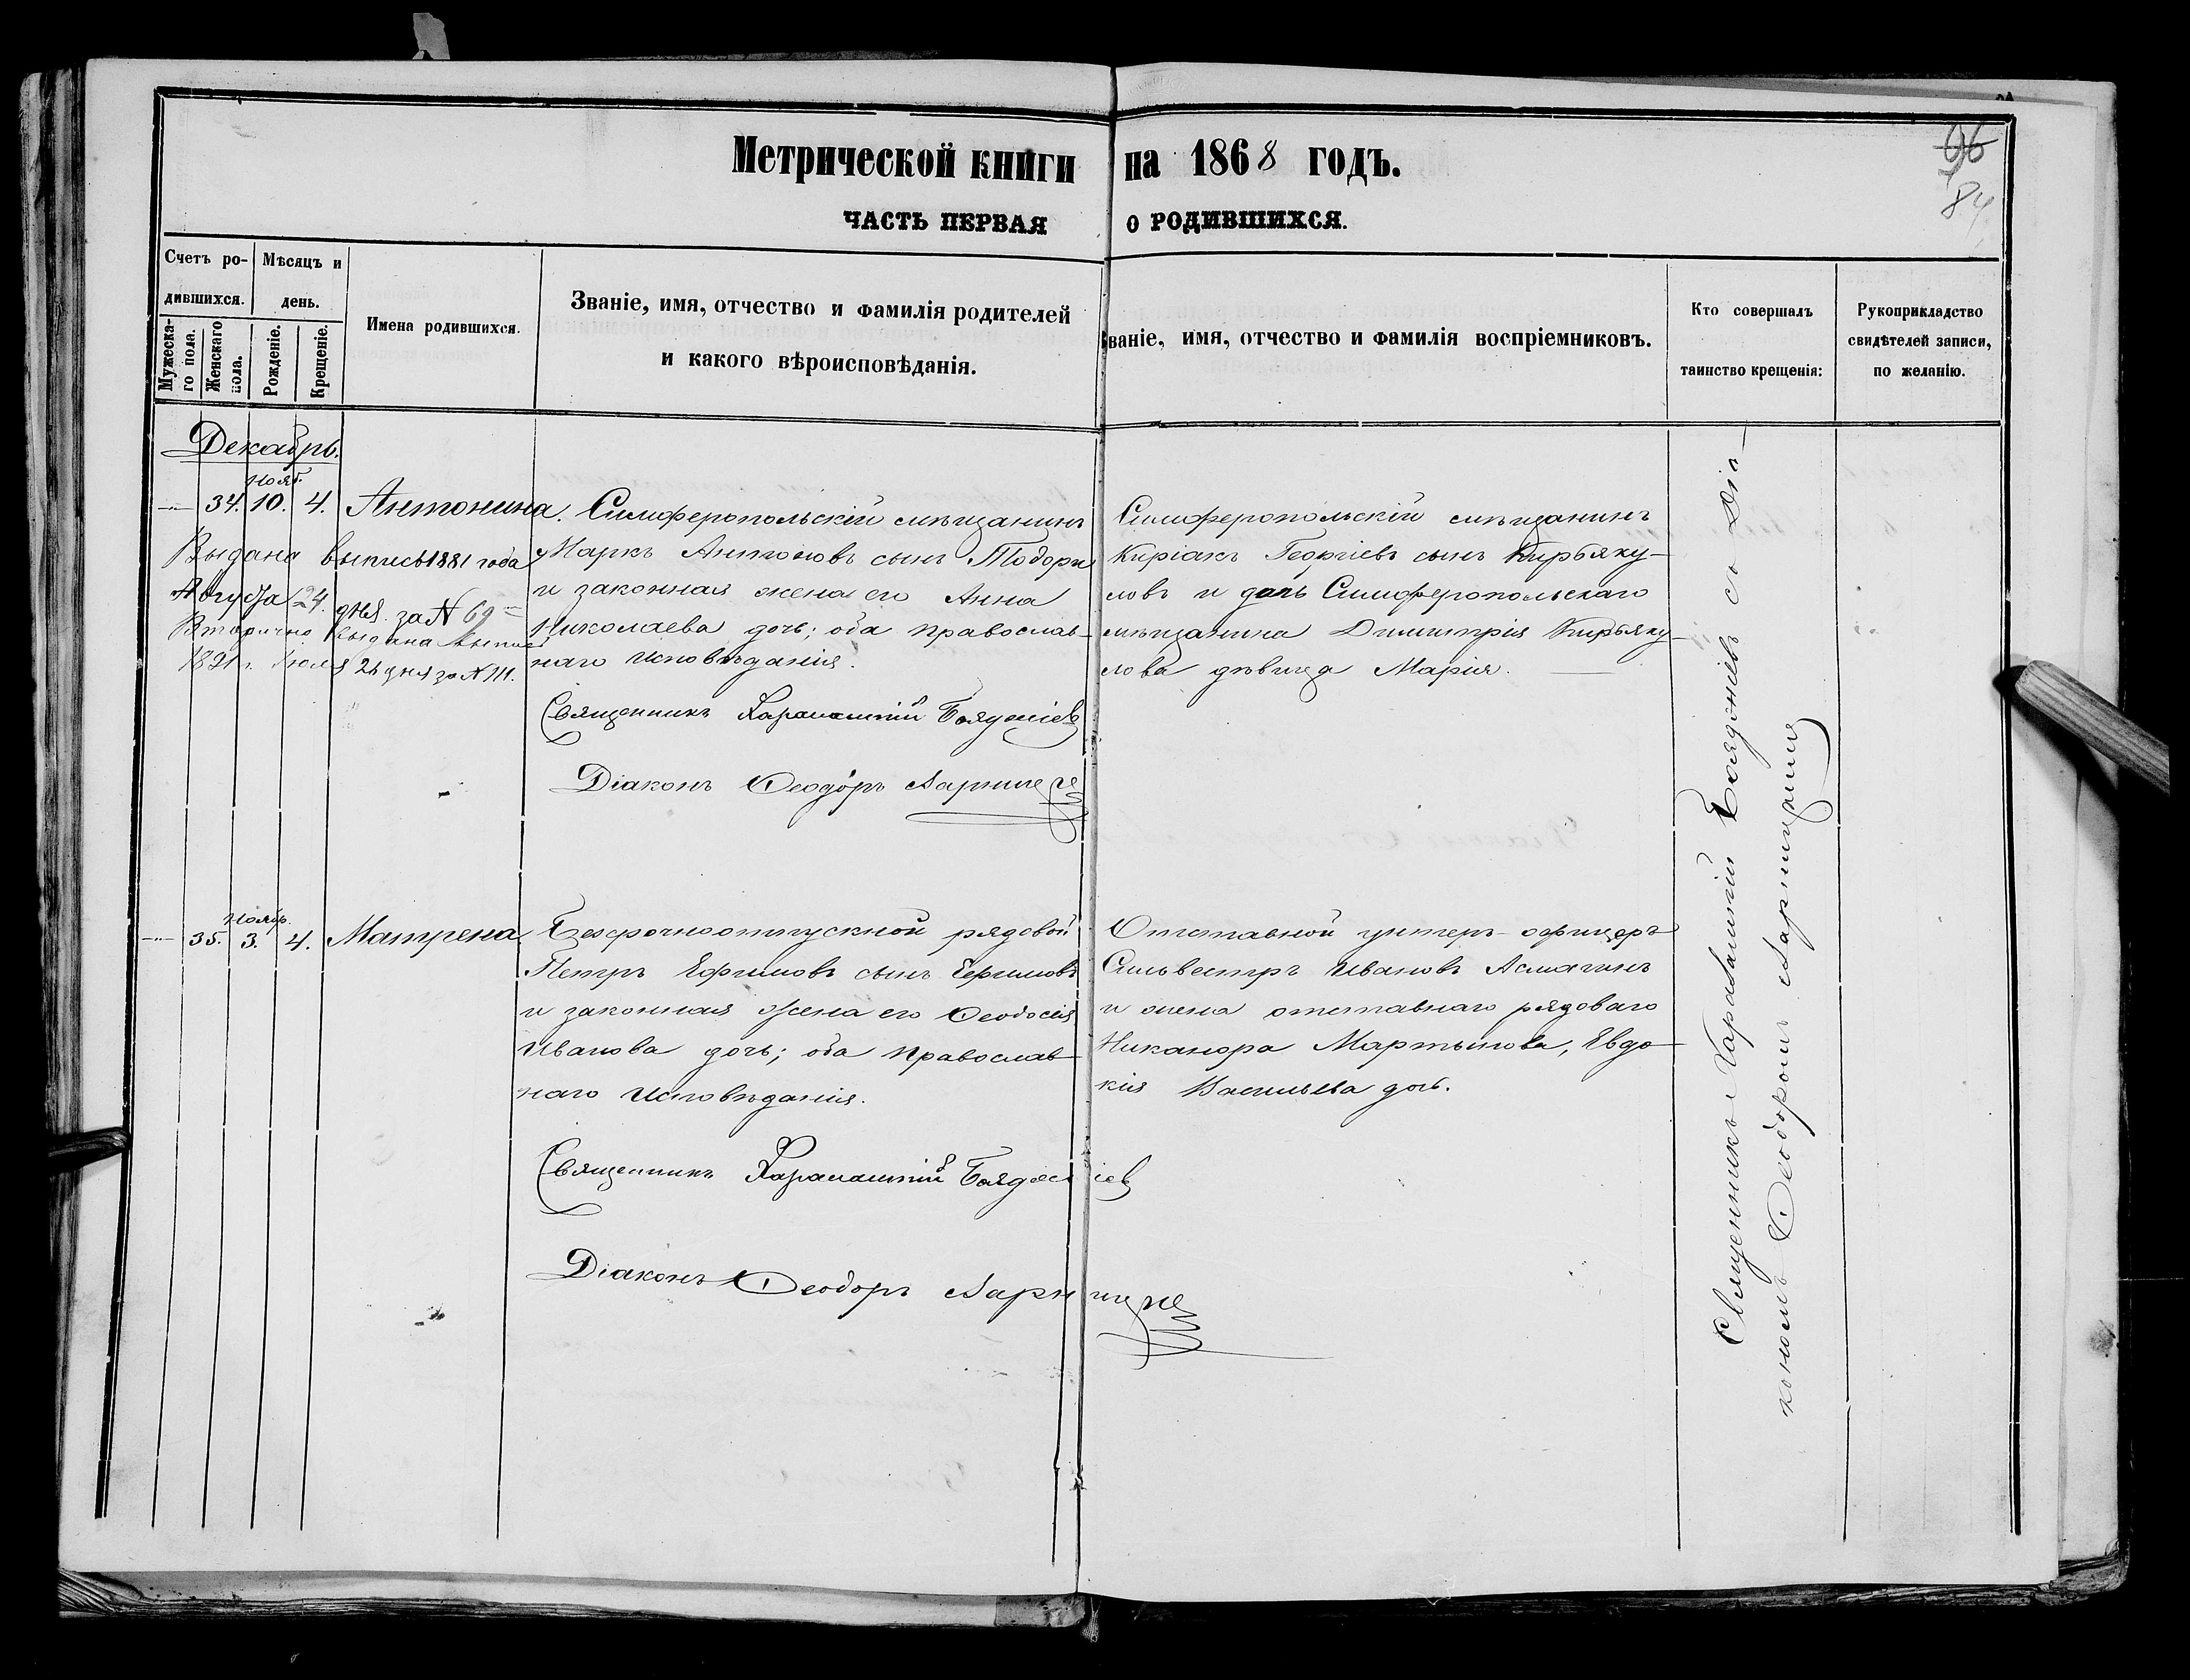 96
84
Метрической книги на 1868 годъ.
ЧАСТЬ ПЕРВАЯ о РОДИВШИХСЯ.
Счетъ ро-
дившихся.
Мужеска-
го пола.
Женскаго
пола.
Мѣсяцъ и
день.
Рожденіе.
Крещеніе.
Имена родившихся.
Званіе, имя, отчество и фамилія родителей
и какого вѣроисповѣданія.
Званіе, имя, отчество и фамилія воспріемниковъ.
Кто совершалъ
таинство крещенія:
Рукоприкладство
свидѣтелей записи,
по желанію.
Декабрь.
Нояб.
34. 10. 4. Антонина.
Выдана выпись 1881 года
Августа 24. дня. за № 69
Вторично выдана выпись
1891 г. Іюля 21 дня за № 111.
Симферопольскій мѣщанинъ
Маркъ Антоновъ сынъ Тодори
и законная жена его Анна
Николаева дочь; оба православ-
наго исповѣданія.
Священникъ Харалампій
Діаконъ Ѳеодоръ
Симферопольскій мѣщанинъ
Киріакъ Георгіевъ сынъ Кирьяку-
ловъ и дочь Симферопольскаго
мѣщанина Димитрія Кирьяку-
лова дѣвица Марія.
Ноябр.
35. 3. 4. Матрена
Безсрочноотпускной рядовой
Петръ Ефимовъ сынъ Ефимовъ
и законная жена его Ѳеодосія
Иванова дочь; оба православ-
наго исповѣданія.
Священникъ Харалампій
Діаконъ Ѳеодоръ
Отставной унтеръ-офицеръ
Сильвестръ Ивановъ
и жена отставнаго рядоваго
Никанора Мартынова, Евдо-
кія Васильева дочь.
Священникъ Харалампій Бояджіевъ съ Діа-
кономъ Ѳеодоромъ